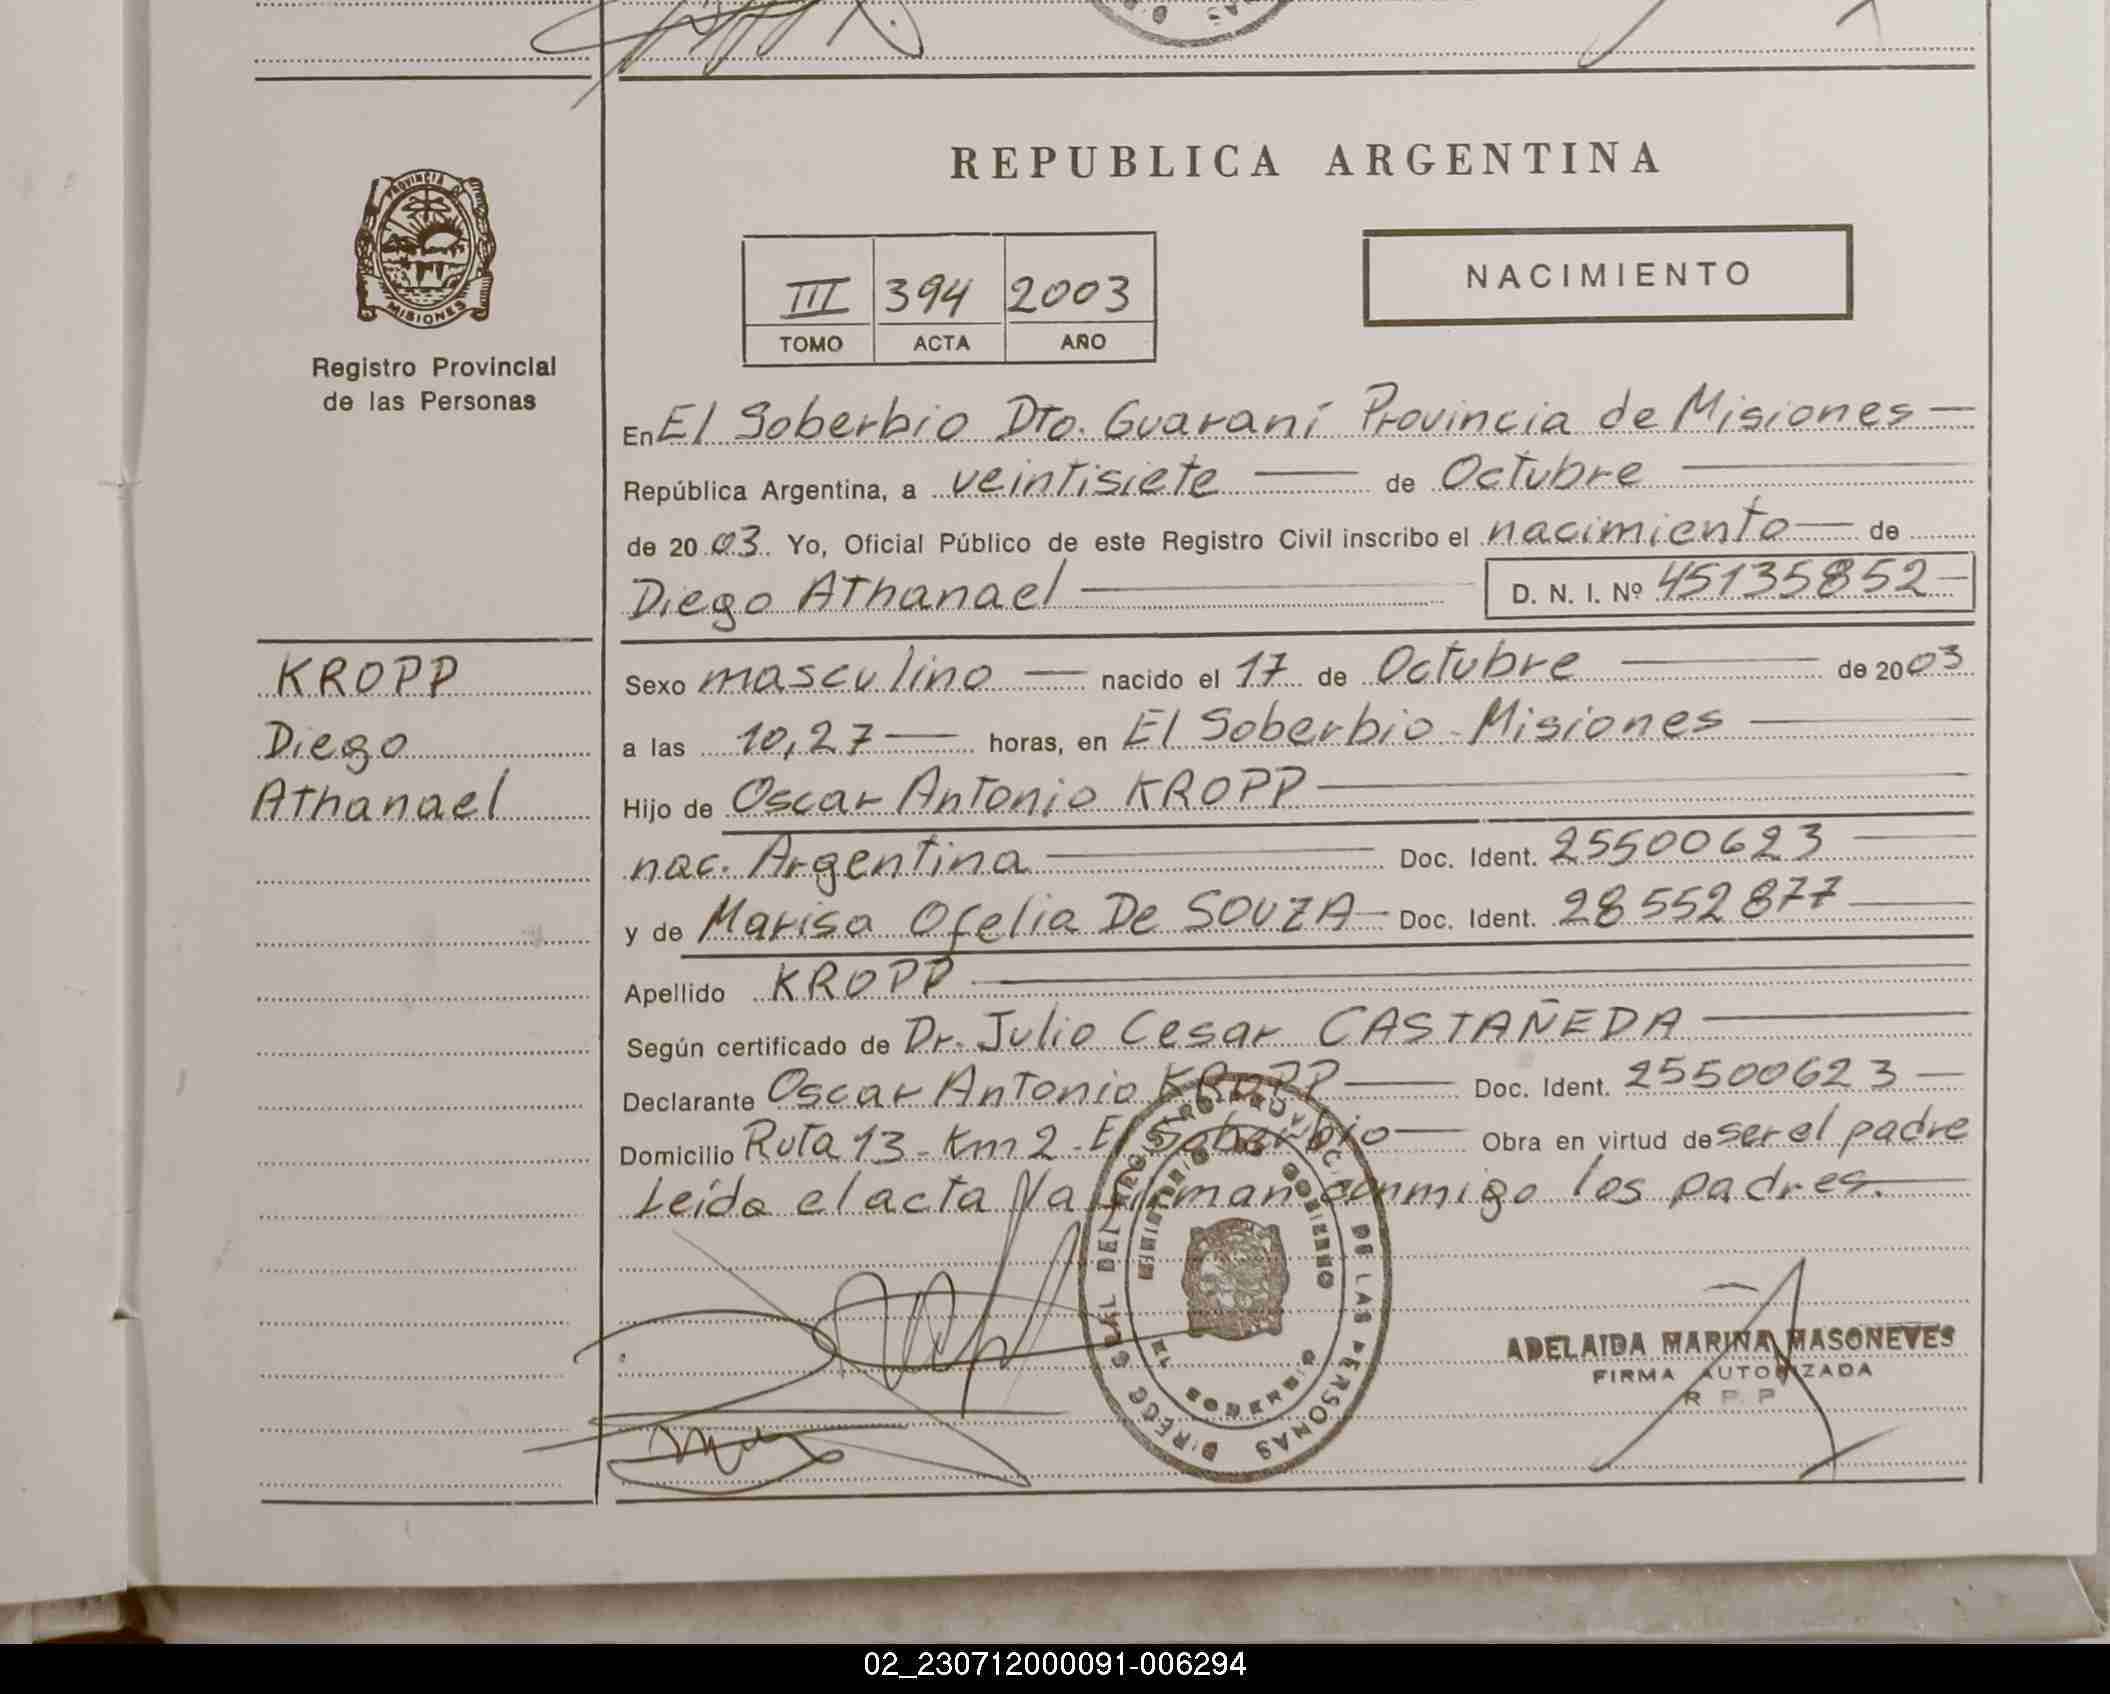 PROVINCIA DE
MISIONES
Registro Provincial
de las Personas
REPUBLICA ARGENTINA
III 394 2003
TOMO ACTA AÑO
NACIMIENTO
En El Soberbio Dto. Guaraní Provincia de Misiones —
República Argentina, a veintisiete — de Octubre —
de 2003. Yo, Oficial Público de este Registro Civil inscribo el nacimiento — de
Diego Athanael — D. N. I. Nº 45135852 —
KROPP
Diego
Athanael
Sexo masculino — nacido el 17 de Octubre — de 2003
a las 10,27 — horas, en El Soberbio - Misiones —
Hijo de Oscar Antonio KROPP —
nac. Argentina — Doc. Ident. 25500623 —
y de Marisa Ofelia De SOUZA — Doc. Ident. 28552877 —
Apellido KROPP —
Según certificado de Dr. Julio Cesar CASTAÑEDA —
Declarante Oscar Antonio KROPP — Doc. Ident. 25500623 —
Domicilio Ruta 13 - Km 2 - El Soberbio — Obra en virtud de ser el padre
Leída el acta la firman conmigo los padres. —
DEL REGISTRO PROVINCIAL DE LAS PERSONAS
MINISTERIO DE GOBIERNO
EL SOBERBIO
ADELAIDA MARINA MASONEVES
FIRMA AUTORIZADA
R P P
02_230712000091-006294